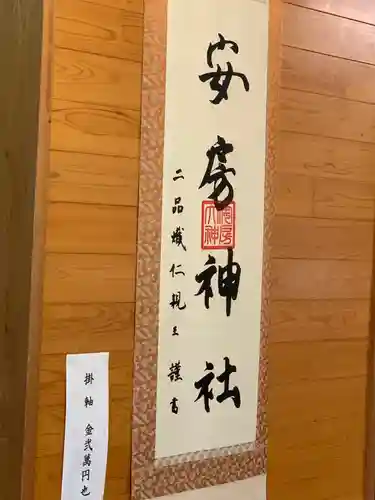 安房神社
安房
大神
二品熾仁親王謹書
掛軸 金弐萬円也